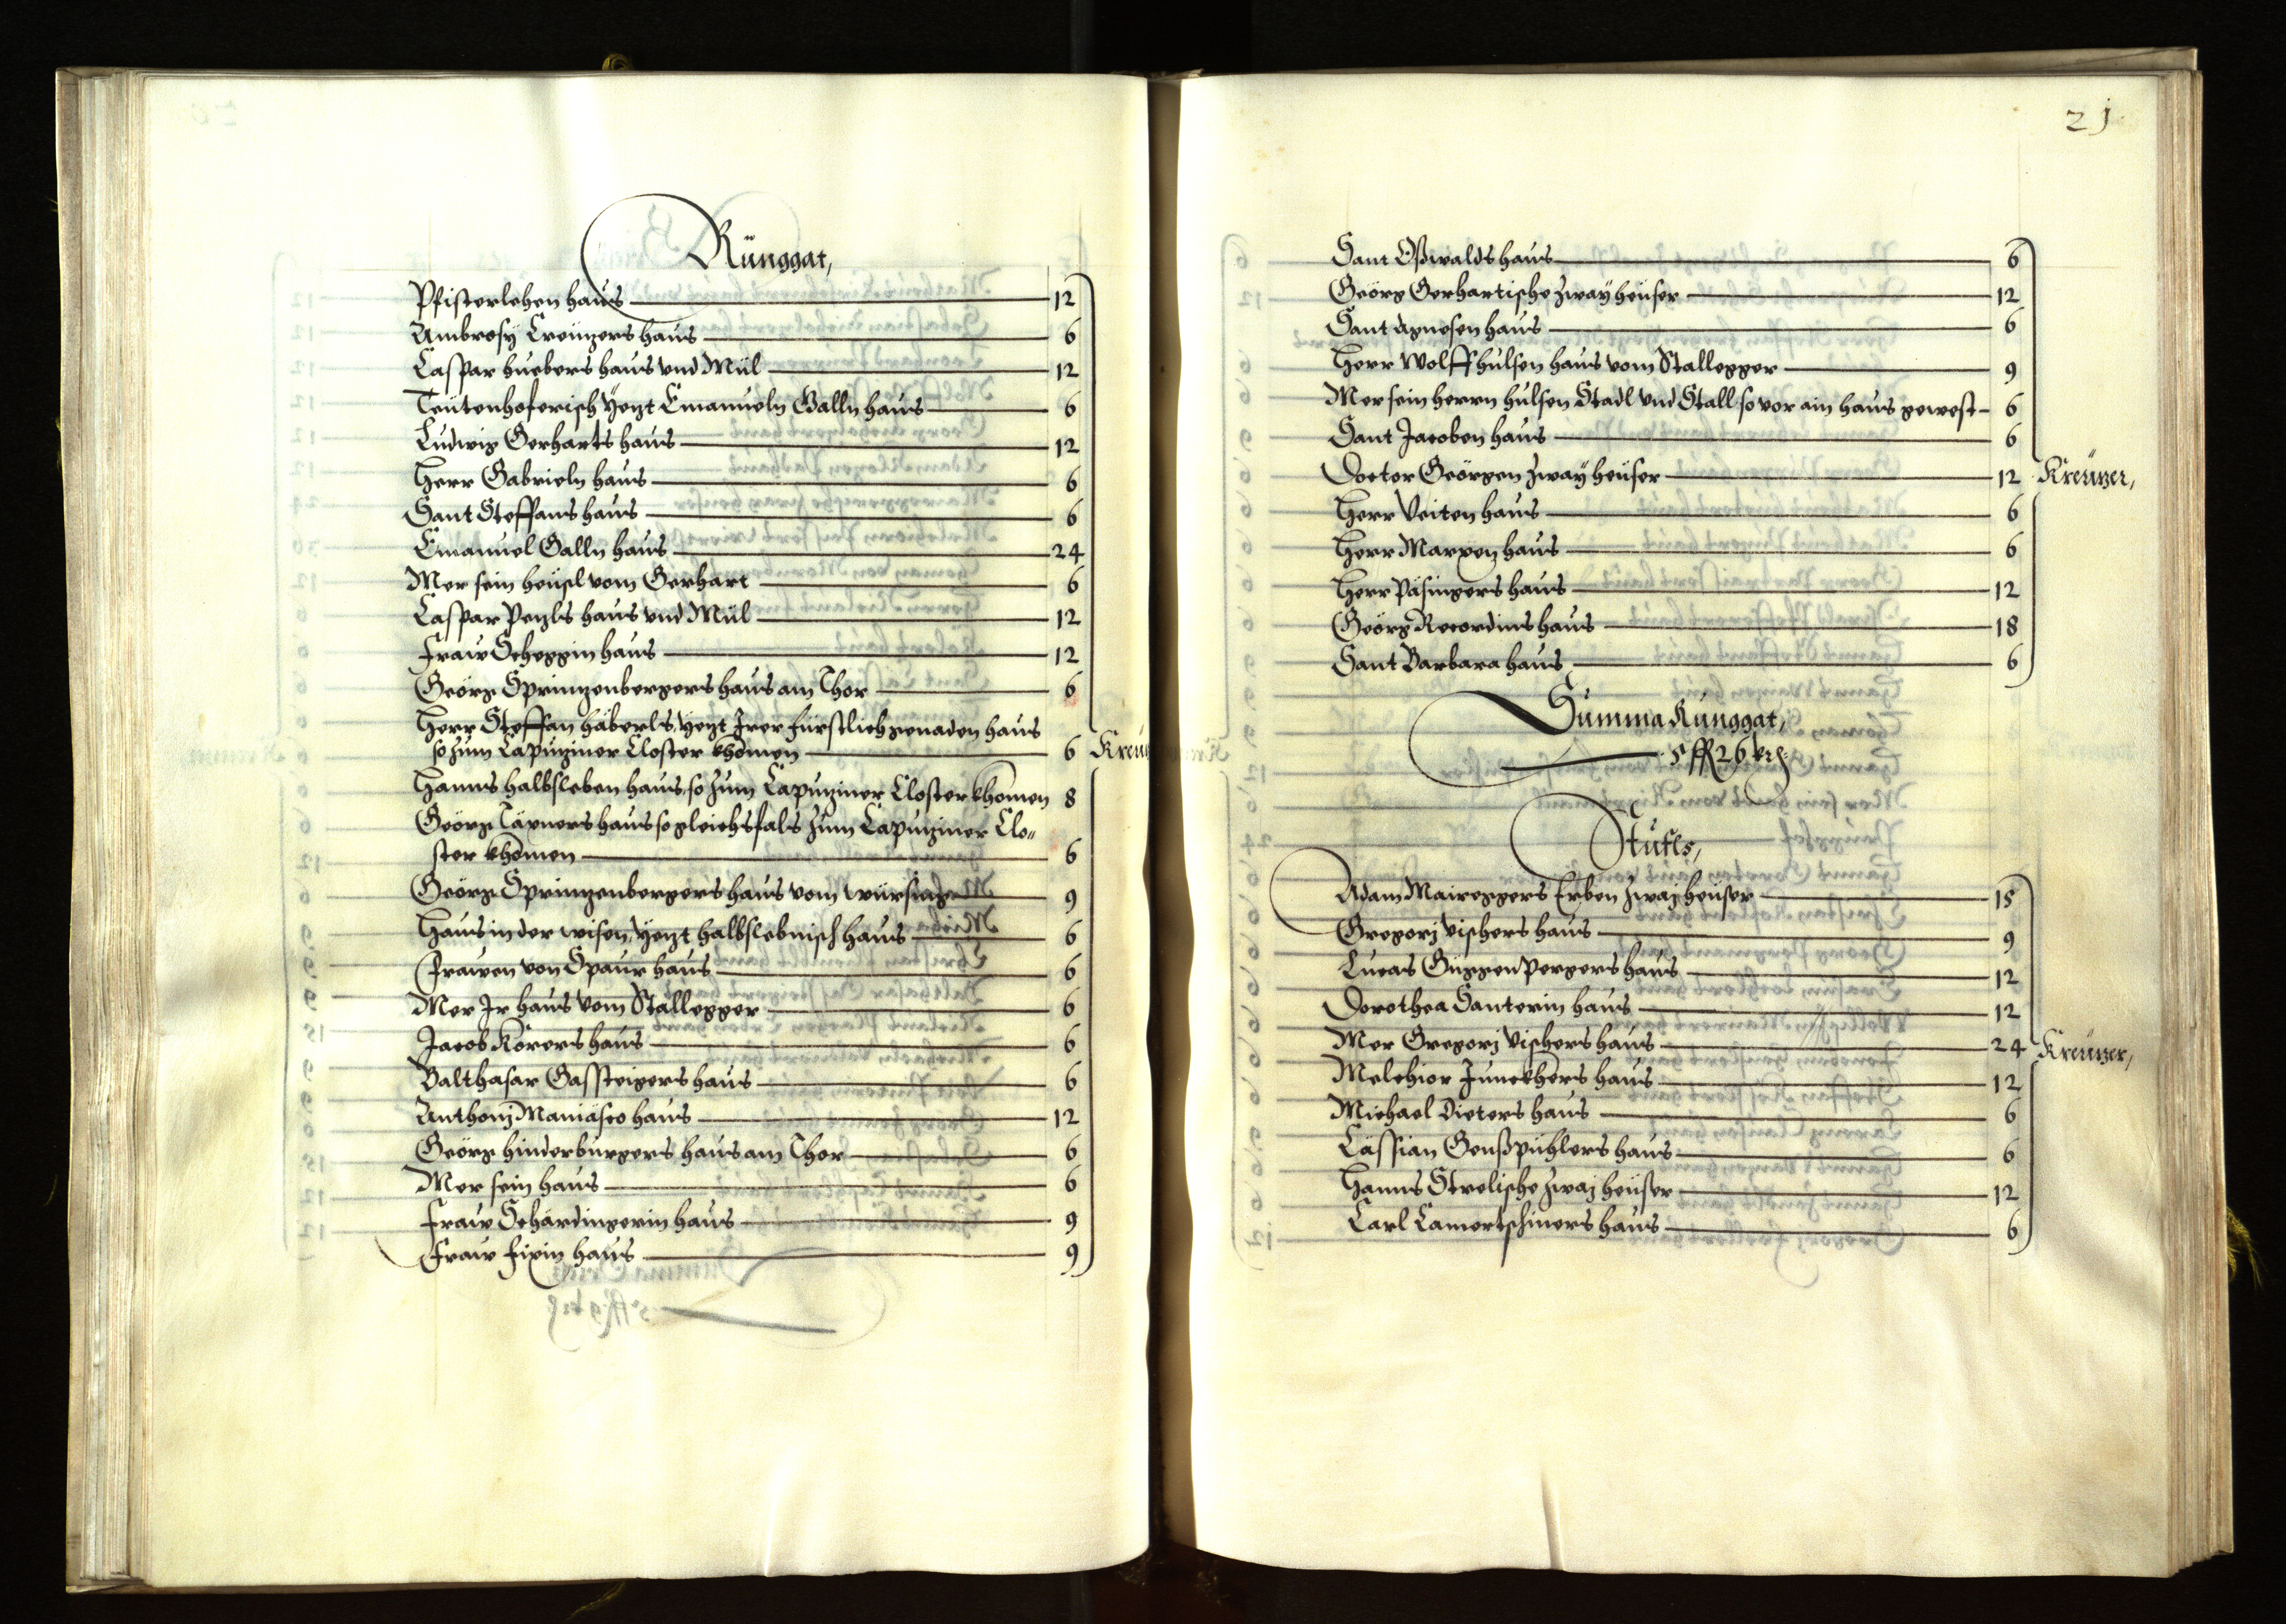 Rünggat,
Pfisterlehen haus 12
Ambrosÿ Creützers haus 6
Caspar huebers haus vnd Mül 12
Teütenhoferisch yezt Emanueln Galln haus 6
Ludwig Gerharts haus 12
Herr Gabrieln haus 6
Sant Steffans haus 6
Emanuel Galln haus 24
Mer sein heüsl vom Gerhart 6
Caspar Penzls haus vnd Mül 12
Fraw Scheggin haus 12
Geörg Sprinzenbergers haus am Thor 6
Herr Steffan häberls, yezt Irer fürstlich genaden haus
so zum Capuziner Closter khomen 6
Hanns halbsleben haus, so zum Capuziner Closter khomen 8
Geörg Täxners haus so gleichsfals zum Capuziner Clo-
ster khomen 6
Geörg Sprinzenbergers haus vom 9
Haus in der wisen, yezt halbslebnisch haus 6
Frawen von Spaur haus 6
Mer Ir haus vom Stallegger 6
Jacob Körers haus 6
Balthasar Gassteigers haus 6
Anthonj Maniäsco haus 12
Geörg hinderburgers haus am Thor 6
Mer sein haus 6
Fraw Schärdingerin haus 9
Fraw Fixin haus 9
Kreu
21
Sant Oßwalds haus 6
Geörg Gerhartische zway heüser 12
Sant Agnesen haus 6
Herr Wolff hülsen haus vom Stallegger 9
Mer sein herrn hülsen Stadl vnd Stall so vor ain haus gewest 6
Sant Jacoben haus 6
Doctor Geörgen zwaÿ heüser 12
Kreüzer,
Herr Veiten haus 6
Herr Marxen haus 6
Herr Päsingers haus 12
Geörg Recordins haus 18
Sant Barbara haus 6
Summa Runggat,
5 ff 26 kr
Stufls,
Adam Maireggers Erben zwaj heüser 15
Gregorj Vischers haus 9
Lucas Güggenpergers haus 12
Dorothea Santerin haus 12
Mer Gregorj Vischers haus 24
Kreüzer,
Melchior Junckhers haus 12
Michael Dieters haus 6
Cässian Genßpühlers haus 6
Hanns Strelische zwaj heüser 12
Carl Camertschiners haus 6